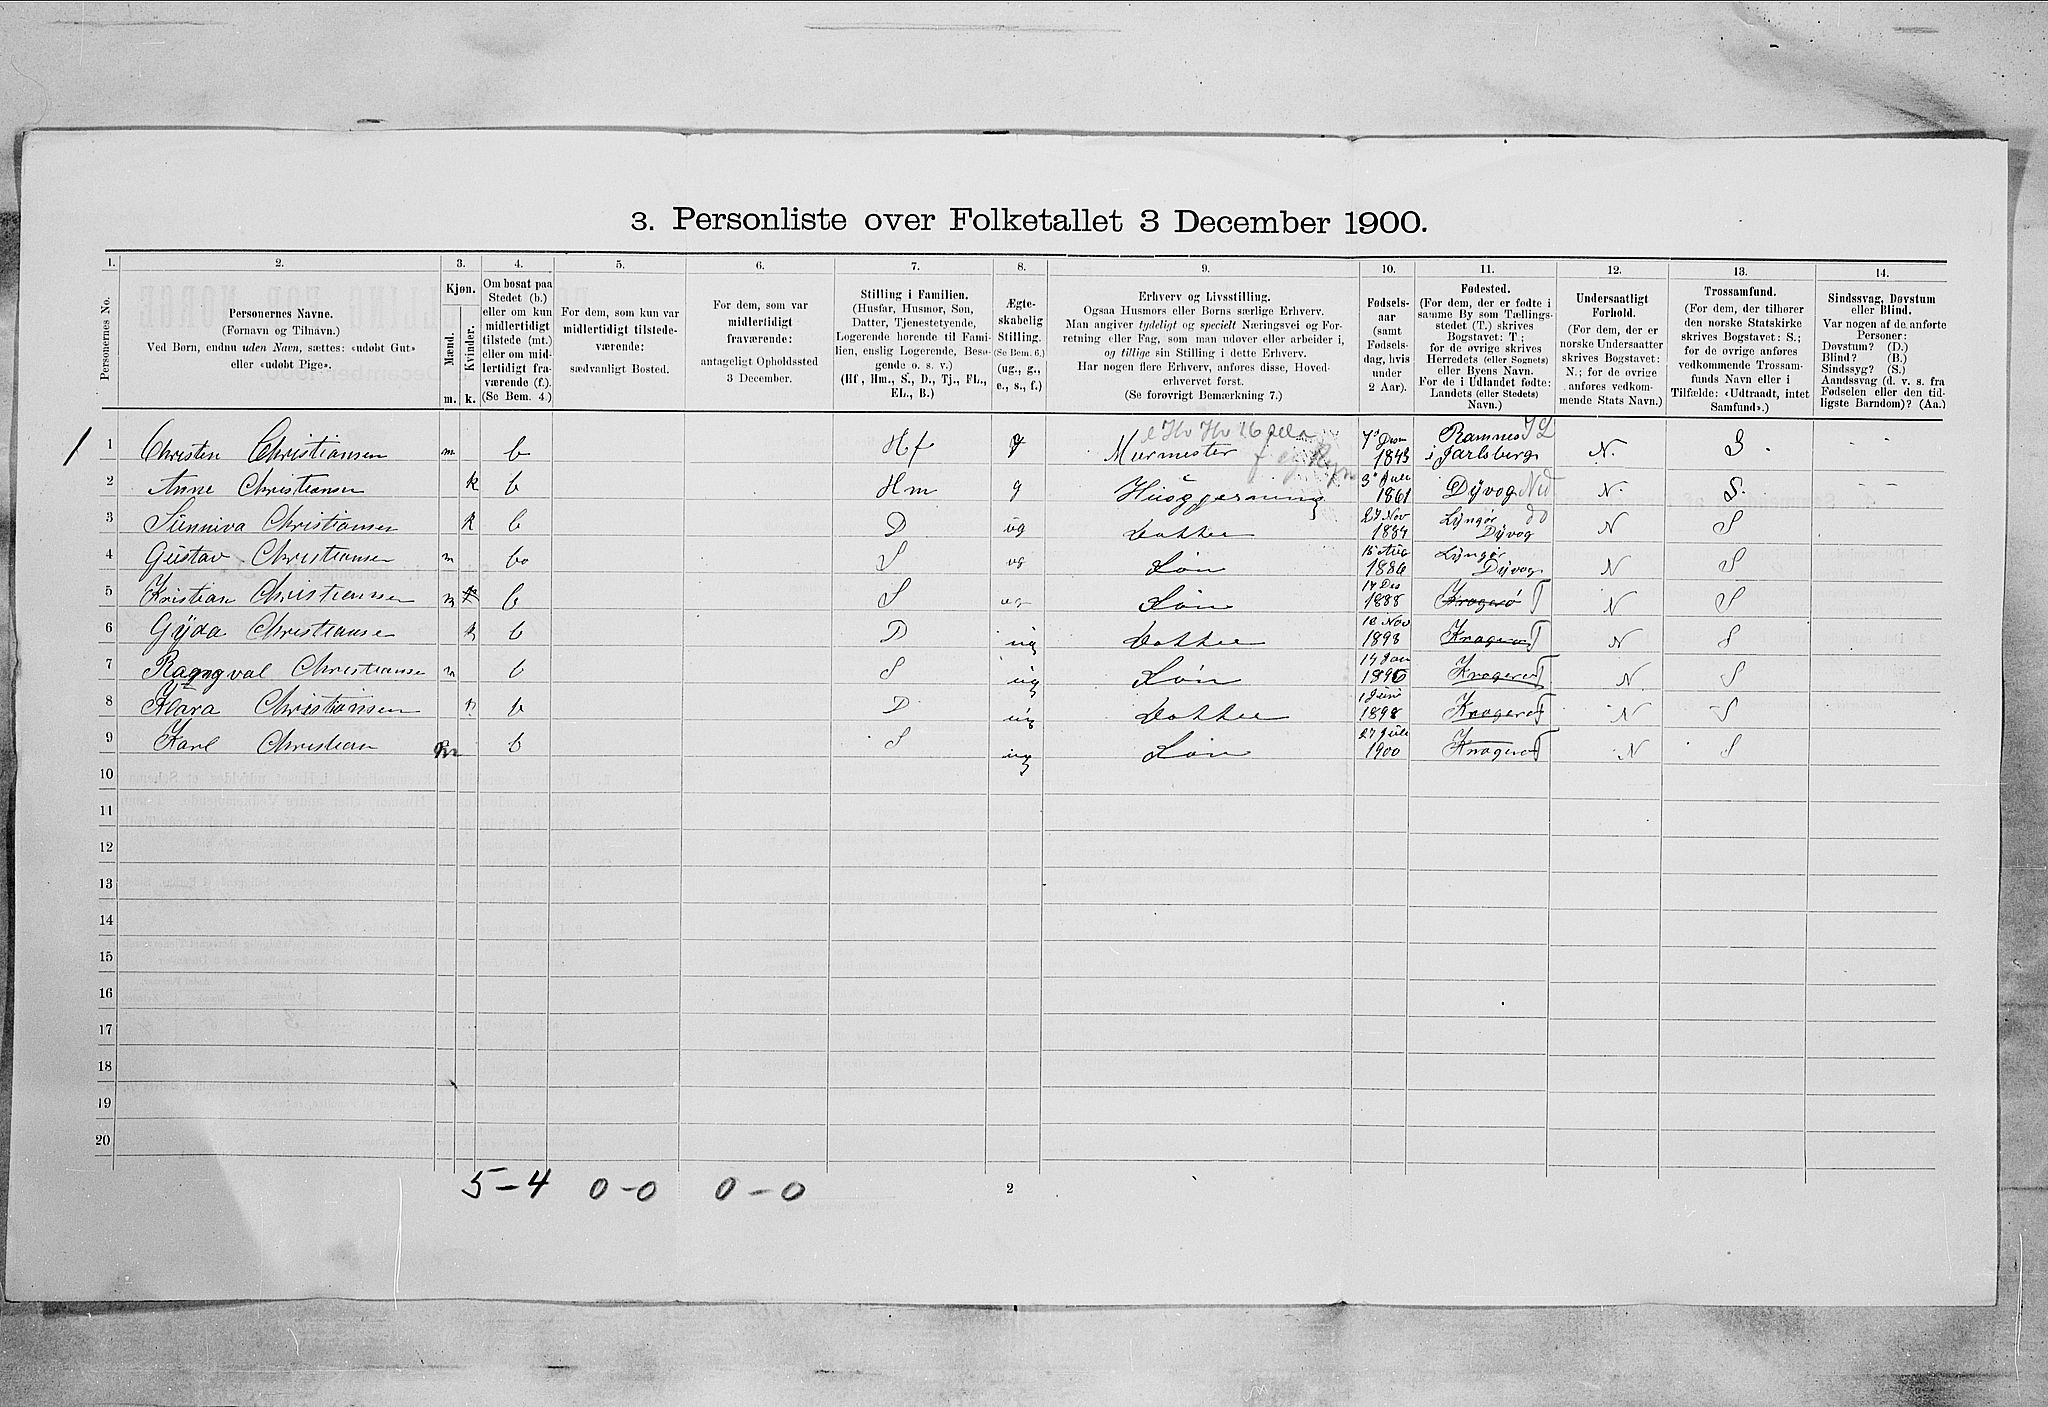 3. Personliste over Folketallet 3 December 1900.
1. 2. 3. 4. 5. 6. 7. 8. 9. 10. 11. 12. 13. 14.
Personernes No.
Personernes Navne.
(Fornavn og Tilnavn.)
Ved Børn, endnu uden Navn, sættes: «udøbt Gut»
eller «udøbt Pige».
Kjøn.
Mænd.
Kvinder.
m. k.
Om bosat paa
Stedet (b.)
eller om kun
midlertidigt
tilstede (mt.)
eller om mid-
lertidigt fra-
værende (f.).
(Se Bem. 4.)
For dem, som kun var
midlertidigt tilstede-
værende:
sædvanligt Bosted.
For dem, som var
midlertidigt
fraværende:
antageligt Opholdssted
3 December.
Stilling i Familien.
(Husfar, Husmor, Søn,
Datter, Tjenestetyende,
Logerende hørende til Fami-
lien, enslig Logerende, Besø-
gende o. s. v.)
(Hf., Hm., S., D., Tj., FL.,
EL., B.)
Ægte-
skabelig
Stilling.
(Se Bem. 6.)
(ug., g.,
e., s., f.)
Erhverv og Livsstilling.
Ogsaa Husmors eller Børns særlige Erhverv.
Man angiver tydeligt og specielt Næringsvei og For-
retning eller Fag, som man udøver eller arbeider i,
og tillige sin Stilling i dette Erhverv.
Har nogen flere Erhverv, anføres disse, Hoved-
erhvervet først.
(Se forøvrigt Bemærkning 7.)
Fødsels-
aar
(samt
Fødsels-
dag, hvis
under
2 Aar).
Fødested.
(For dem, der er fødte i
samme By som Tællings-
stedet (T.) skrives
Bogstavet: T;
for de øvrige skrives
Herredets (eller Sognets)
eller Byens Navn.
For de i Udlandet fødte:
Landets (eller Stedets)
Navn.)
Undersaatligt
Forhold.
(For dem, der er
norske Undersaatter
skrives Bogstavet:
N.; for de øvrige
anføres vedkom-
mende Stats Navn.)
Trossamfund.
(For dem, der tilhører
den norske Statskirke
skrives Bogstavet: S.;
for de øvrige anføres
vedkommende Trossam-
funds Navn eller i
Tilfælde: «Udtraadt, intet
Samfund».)
Sindssvag, Døvstum
eller Blind.
Var nogen af de anførte
Personer:
Døvstum? (D.)
Blind? (B.)
Sindssyg? (S.)
Aandssvag (d. v. s. fra
Fødselen eller den tid-
ligste Barndom)? (Aa.)
1 Christen Christiansen m b Hf g Murmester 1843 Ramnes i Jarlsberg N. S.
2 Anne Christiansen k b Hm g Husgjerning 1861 Dÿvog N. S.
3 Sünniva Christiansen k b D ug Dotter 27 Nov 1884 Lÿngør Dÿvog do N S
4 Güstav Christiansen m b S ug Søn 15 Aug 1886 Lÿngør Dÿvog N S
5 Kristian Christiansen m b S ug Søn 17 Des 1888 Kragerø T N S
6 Gÿda Christianse k b D ug Dotter Nov 1893 Kragerø T N S
7 Ragngval Christianse m b S ug Søn 14 Jan 1896 Kragerø T N S
8 Klara Christiansen k b D ug Dotter 1 Juni 1898 Kragerø T N S
9 Karl Christian m b S ug Søn 27 Juli 1900 Kragerø T N S
10
11
12
13
14
15
16
17
18
19
20
5-4 0-0 0-0
2